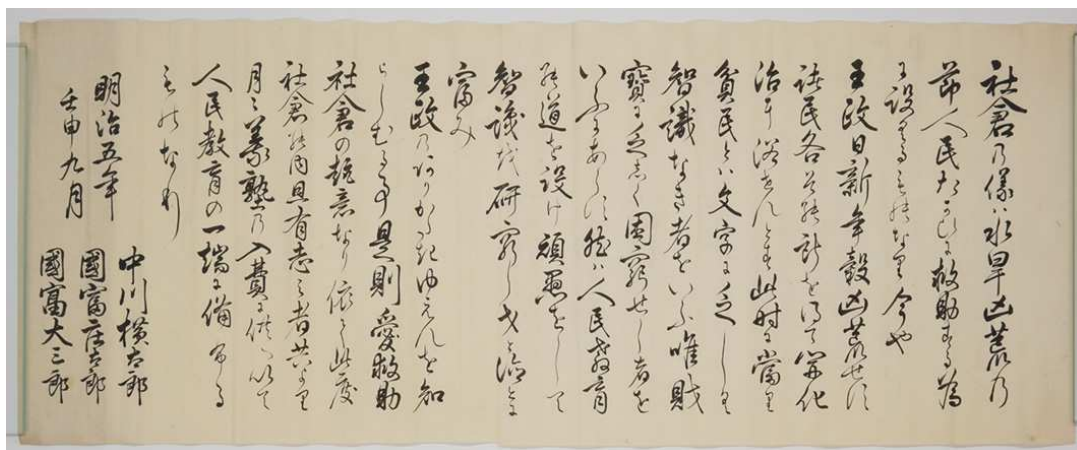 社倉乃儀ハ水旱凶荒乃
節人民たかひに救助する為
に設くるものなり今や
王政日新年穀凶荒せす
諸民各其所を得て開化
治に浴せんとす此時に當り
貧民とハ文字に乏しく
智識なき者をいふ唯財
寶に乏しく困窮せし者を
いふにあらす然ハ人民教育
の道を設け頑愚をして
智識を研究し才と徳とに
富み
王政乃ありかたきゆえんを知
らしむる事是則愛救助
社倉の趣意なり依之此度
社倉の内且有志之者共より
月々義塾乃入費に供へ以て
人民教育の一端に備ふる
ものなり
明治五年
壬申九月
中川横太郎
國富庄太郎
國富大三郎